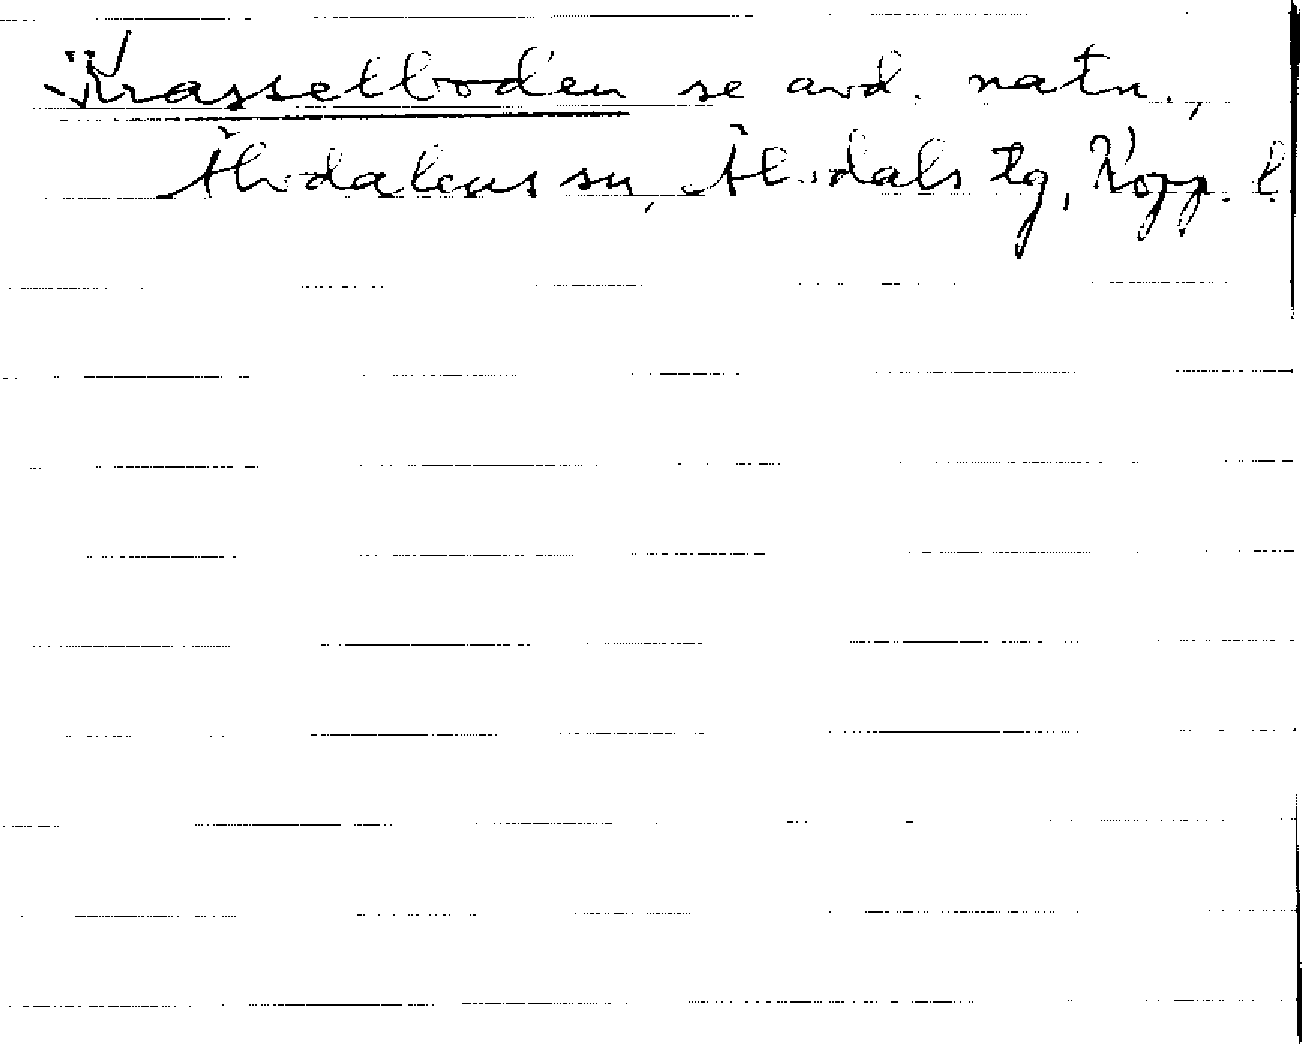 Krasselboden se avd. natn.,
Älvdalens sn, Älvdals tg, Kopp. l